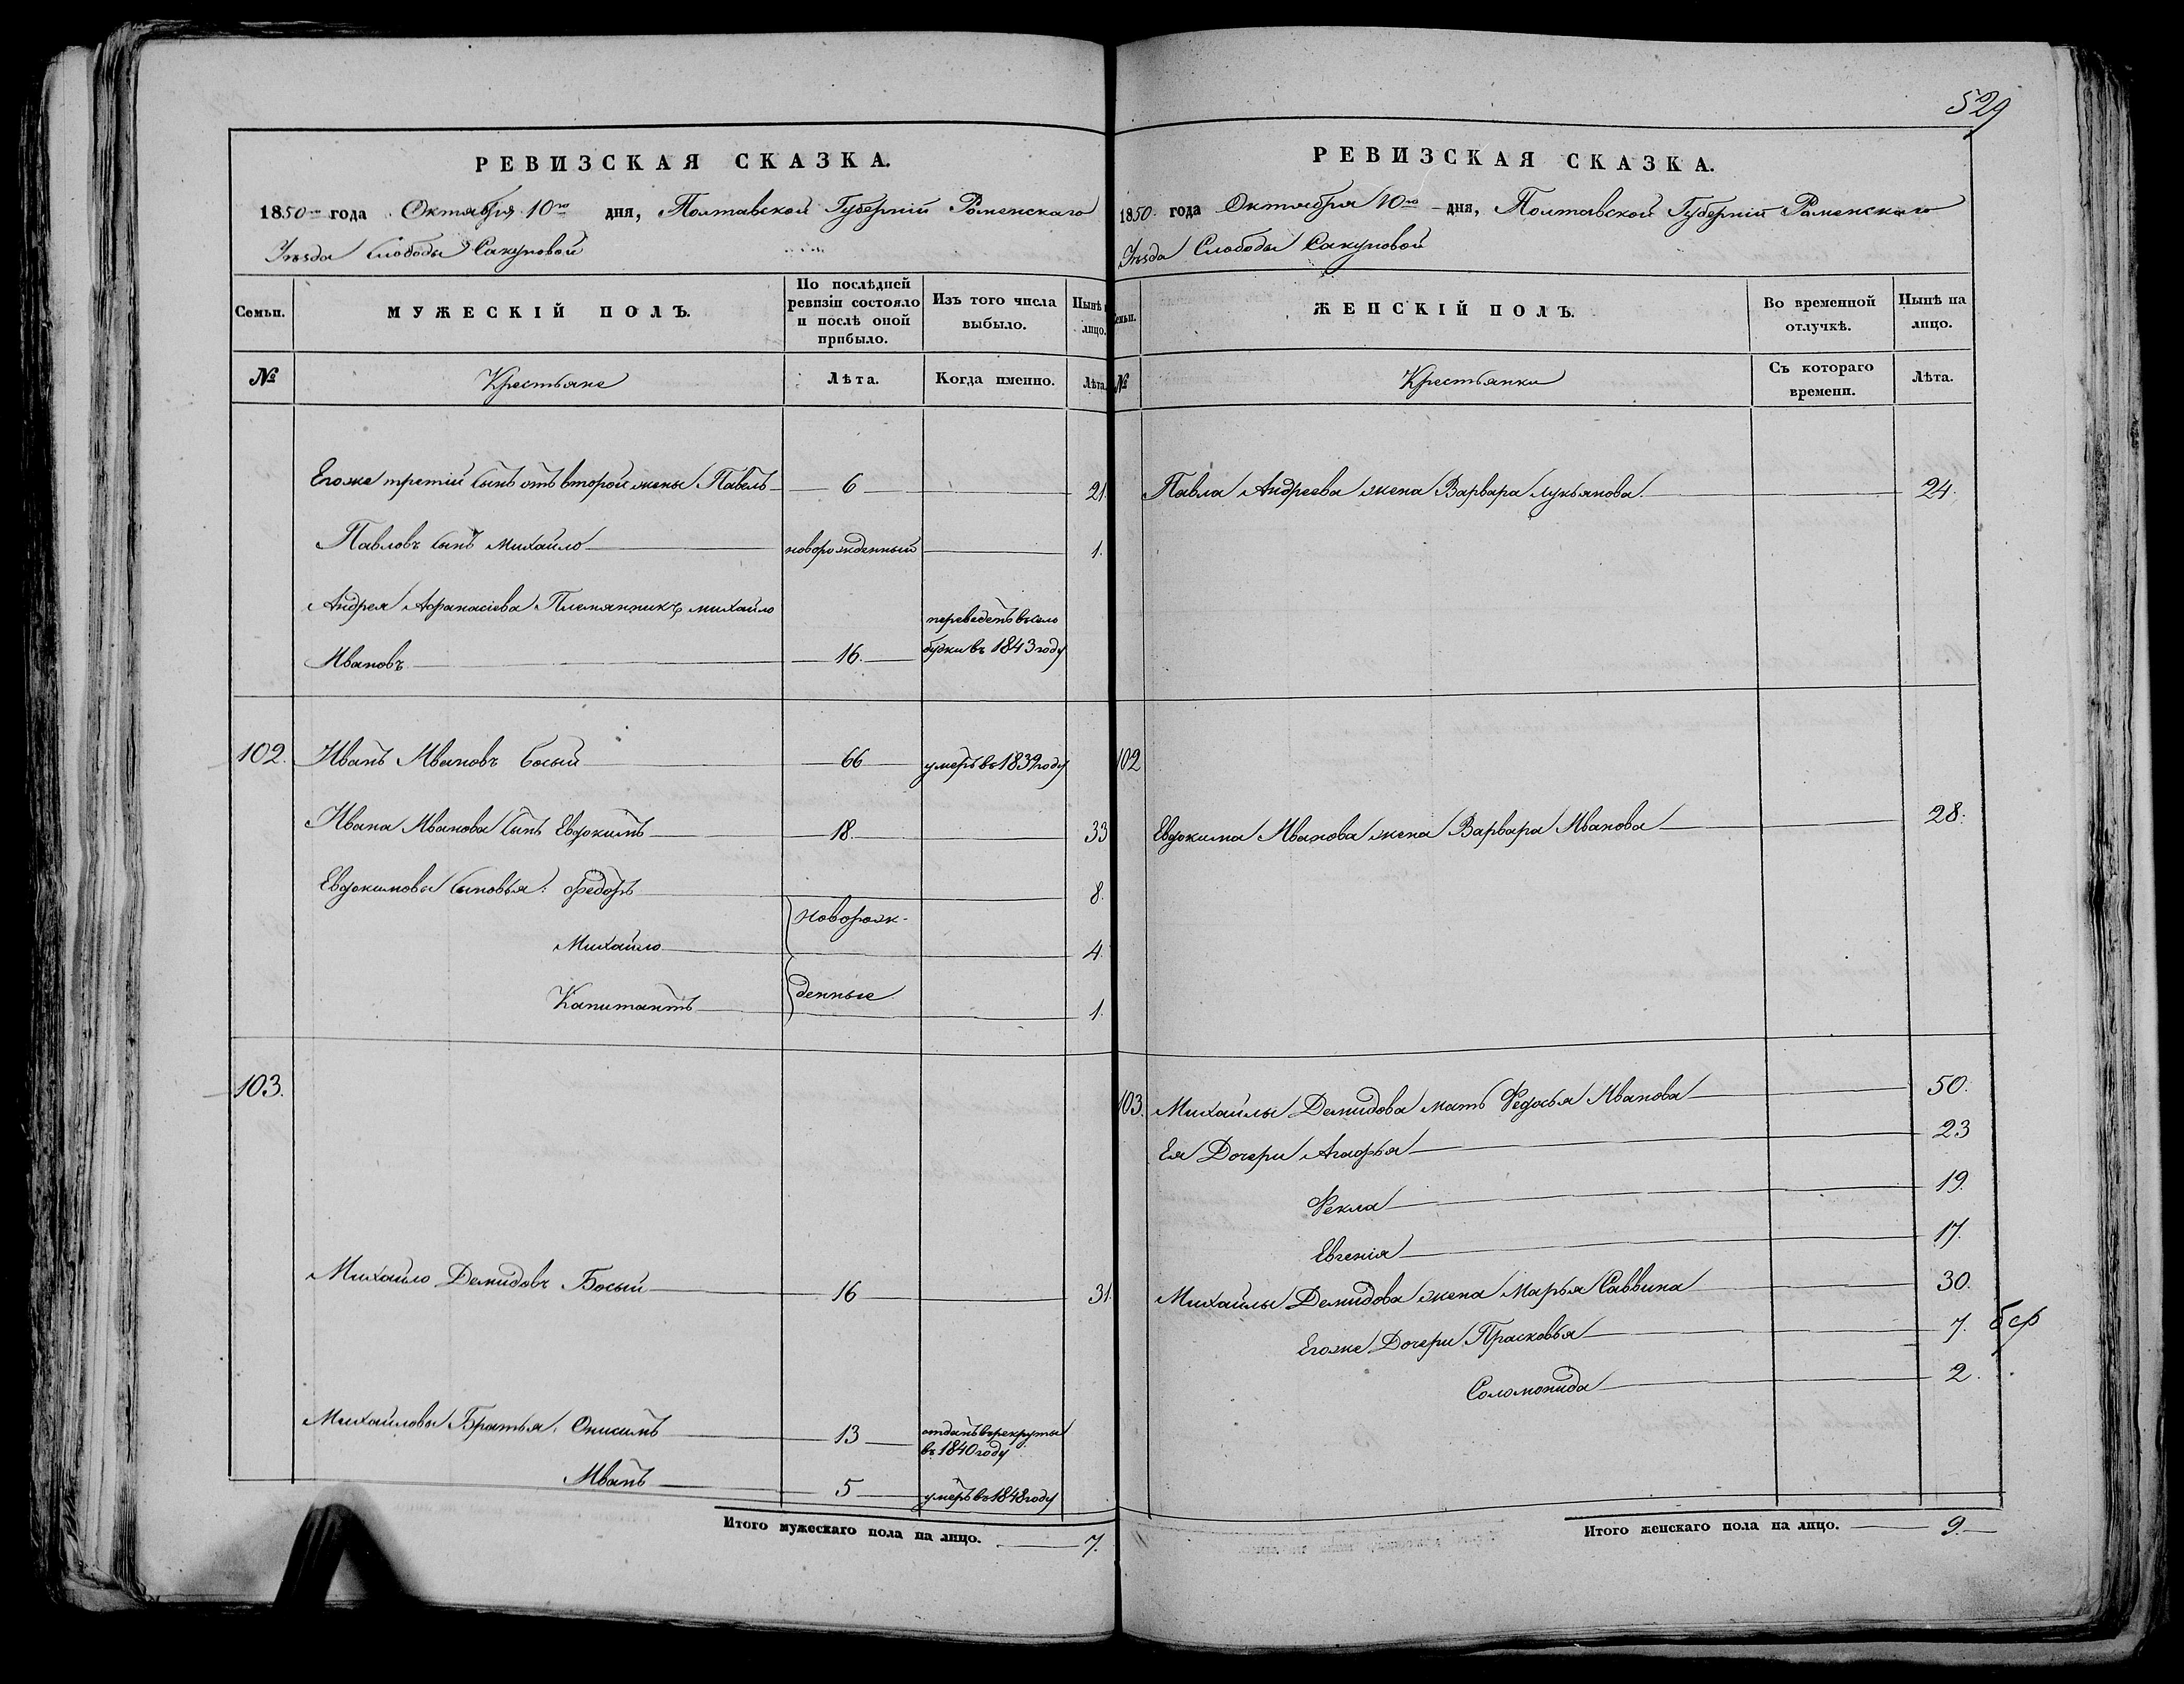 РЕВИЗСКАЯ СКАЗКА.
1850 года Октября 10го дня, Полтавской Губерніи Роменскаго
Уѣзда Слободы Сакуновой
Семьи.
МУЖЕСКІЙ ПОЛЪ.
По послѣдней
ревизіи состояло
и послѣ оной
прибыло.
Изъ того числа
выбыло.
Нынѣ
лицо.
№
Крестьяне
Лѣта.
Когда именно.
Лѣта.
Егоже третій сынъ отъ второй жены Павелъ 6 21.
Павловъ сынъ Михайло новорожденный 1.
Андрея Афанасіева Племянникъ Михайло
Ивановъ 16. переведенъ въ село
будки въ 1843 году
102. Иванъ Ивановъ Босый 66 умеръ въ 1839 году
Ивана Иванова сынъ Евдокимъ 18. 33
Евдокимовы сыновья: Федоръ 8.
новорож-
Михайло 4.
денные
Капитанъ 1.
103.
Михайло Демидовъ Босый 16 31.
Михайловы Братья: Онисимъ 13 отданъ въ рекруты
въ 1840 году
Иванъ 5 умеръ въ 1848 году
Итого мужескаго пола на лицо. 7.
529
РЕВИЗСКАЯ СКАЗКА.
1850 года Октября 10го дня, Полтавской Губерніи Роменскаго
Уѣзда Слободы Сакуновой
Семьи.
ЖЕНСКІЙ ПОЛЪ.
Во временной
отлучкѣ.
Нынѣ на
лицо.
№
Крестьянки
Съ котораго
времени.
Лѣта.
Павла Андреева жена Варвара Лукьянова. 24.
102
Евдокима Иванова жена Варвара Иванова 28.
103. Михайлы Демидова мать Федосья Иванова 50.
Ея Дочери Агафья 23
Фекла 19.
Евгенія 17.
Михайлы Демидова жена Марья Саввина 30.
Егоже Дочери Прасковья 7.
Соломонида 2.
Итого женскаго пола на лицо. 9.